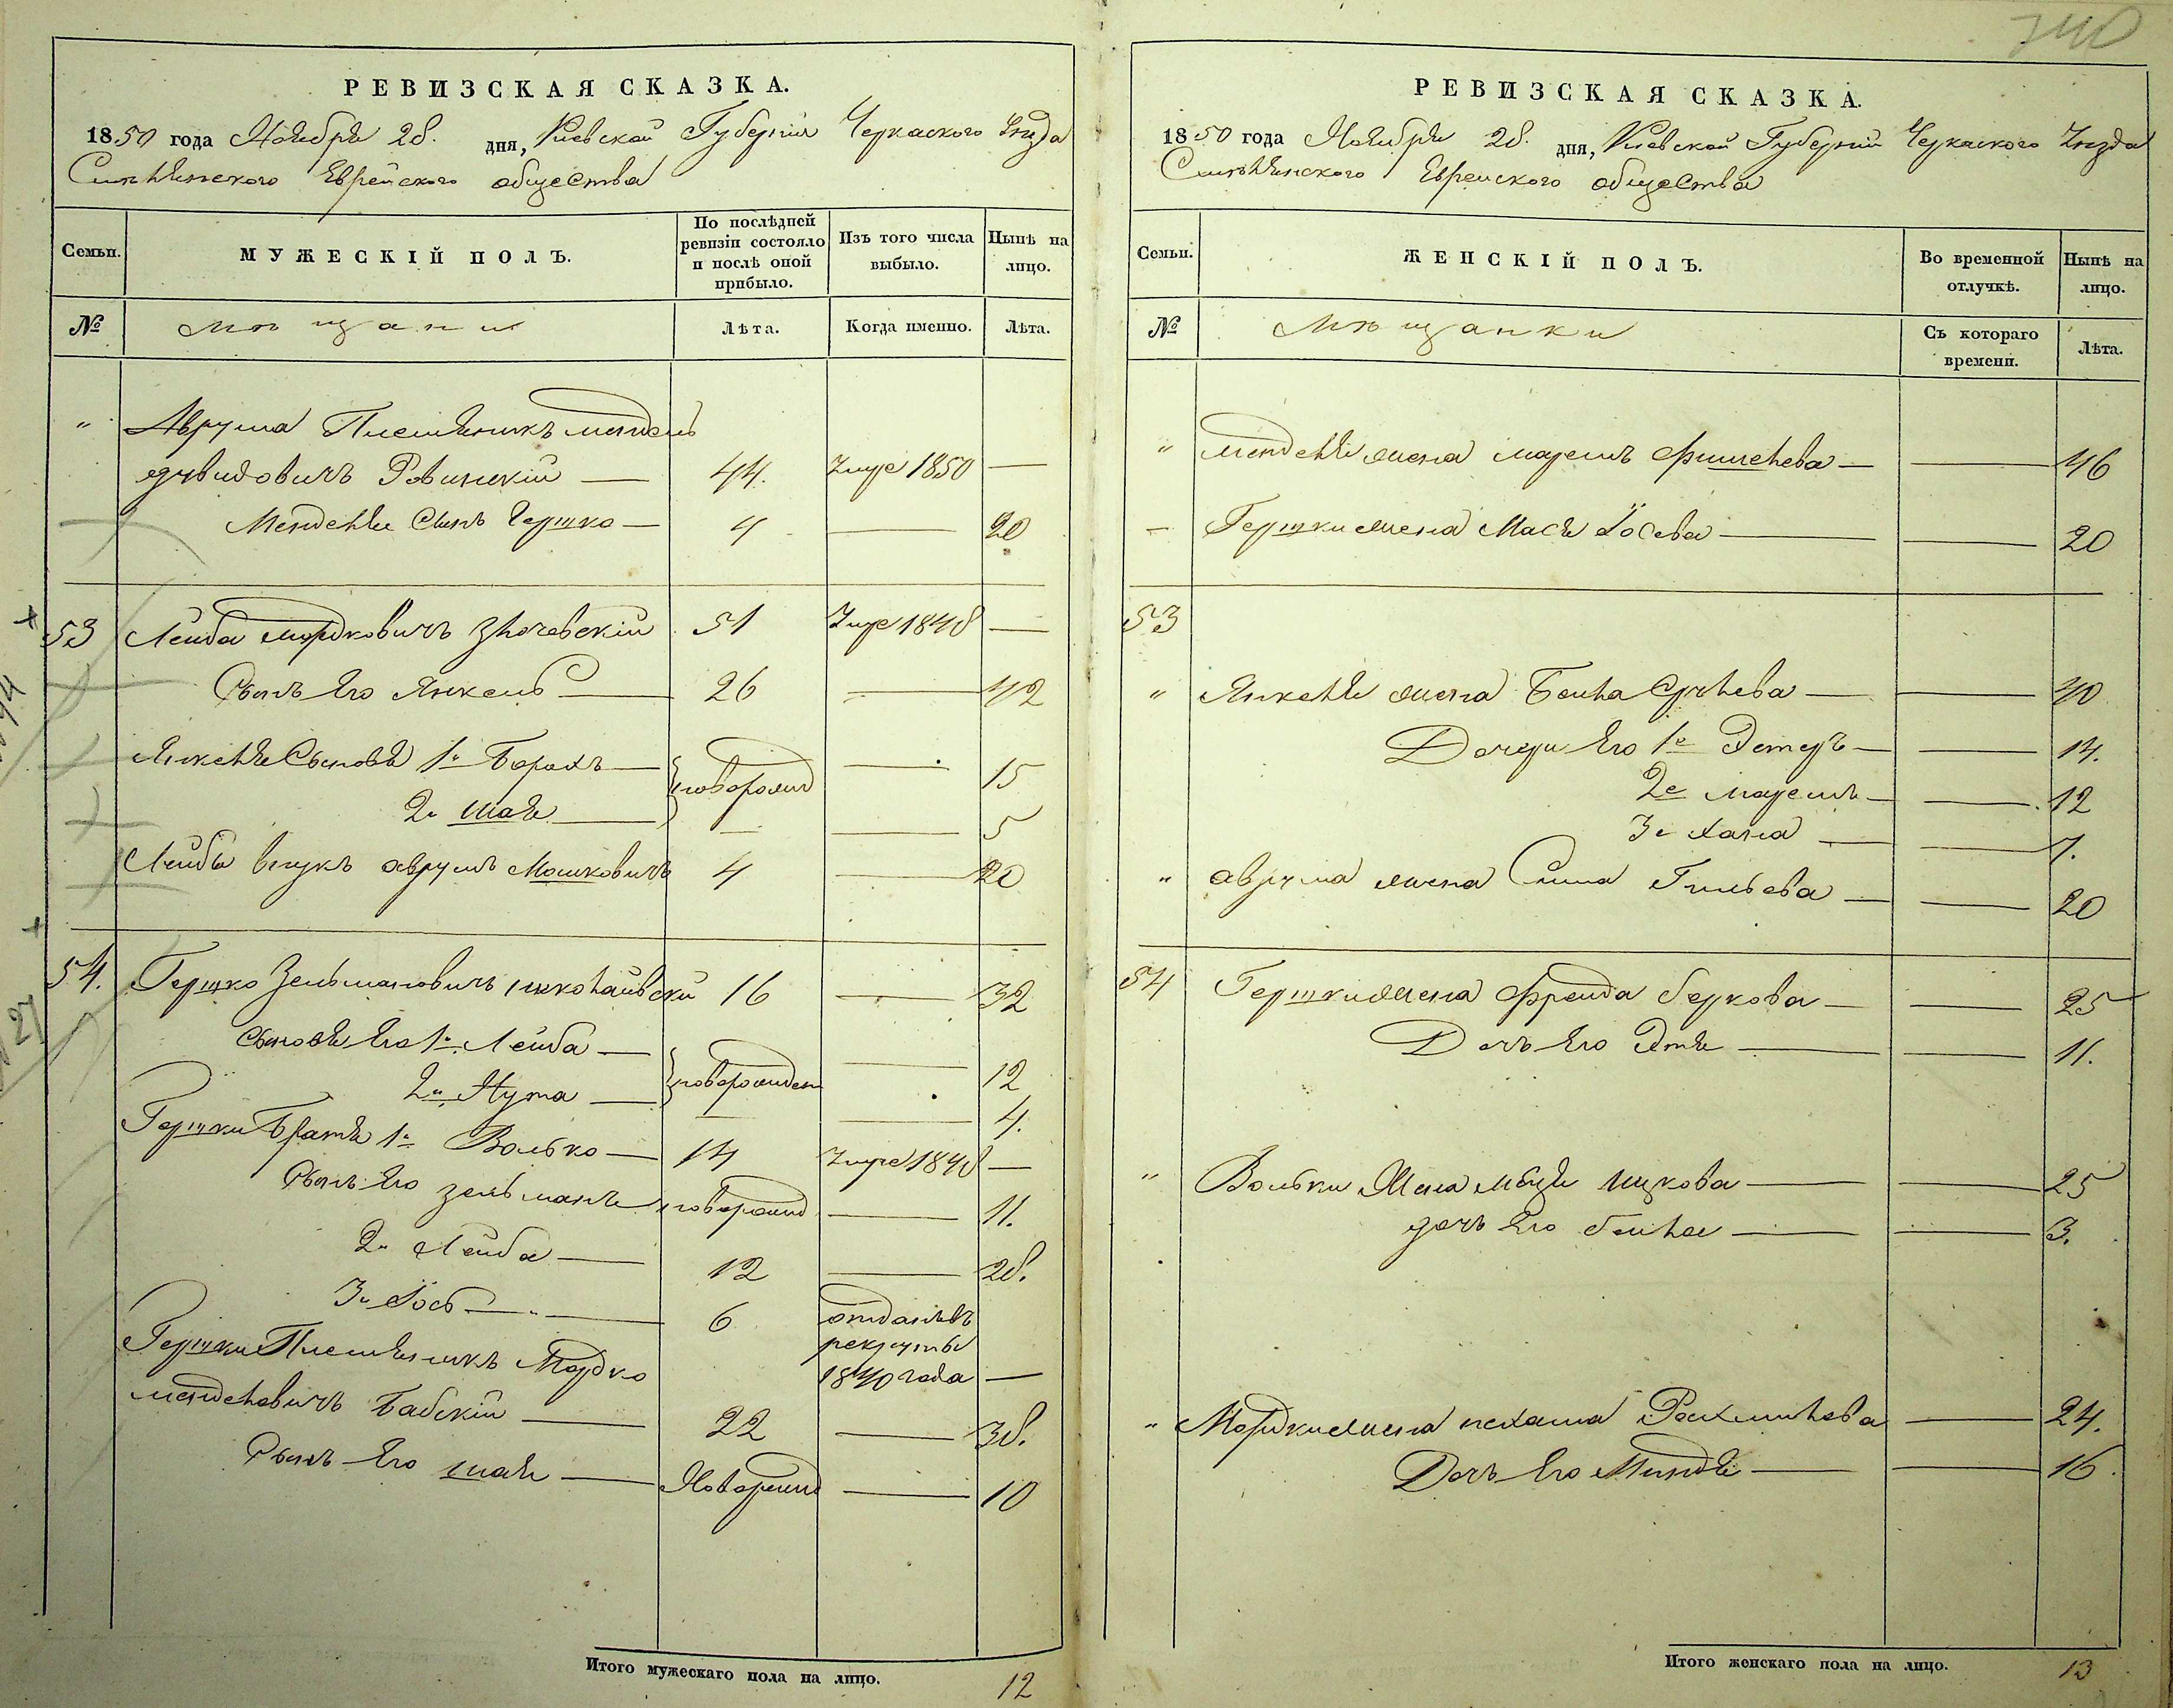 740
РЕВИЗСКАЯ СКАЗКА.
1850 года Ноября 28. дня, Киевской Губернии Черкаского Уезда
Смелянского Еврейского общества
Семьи.
МУЖЕСКІЙ ПОЛЪ.
По послѣдней ревизіи состояло и послѣ оной прибыло.
Изъ того числа выбыло.
Нынѣ на лицо.
№
мѣщани
Лѣта.
Когда именно.
Лѣта.
" Аврума Племянникъ мендель
Дувидовичъ Ровинскій — 44. Умре 1850 —
Менделя Сынъ Гершко — 4 — 20
53 Лейба мордковичъ Злочевскій 51 Умре 1848 —
Сынъ Его Янкель — 26 — 42
Янкеля Сыновя 1й Борахъ — новорожд — 15
2й шая — — 5
Лейбы внукъ аврумъ Мошковичъ 4 — 20
54. Гершко Зельмановичъ школаивский 16 — 32
Сыновя Его 1й Лейба — новорожден — 12
2й Нута — — 4.
Гершки Братя 1й Волько — 14 Умре 1848 —
Сынъ Его зельманъ новорожд — 11.
2й Лейба — 12 — 28.
3й Іось — 6 отданъ въ
рекруты
1840 года —
Гершки Племянникъ Мордко
менделевичъ Бабскій — 22 — 38.
Сынъ Его шая — Новорожд — 10
Итого мужескаго пола на лицо. 12
РЕВИЗСКАЯ СКАЗКА.
1850 года Ноября 28. дня, Киевской Губерній Черкаского Уезда
Смелянского Евреиского общества
Семьи.
ЖЕНСКІЙ ПОЛЪ.
Во временной отлучкѣ.
Нынѣ на лицо.
№
Мѣщанки
Съ котораго времени.
Лѣта.
" менделя жена маремъ фишелева — — 46
— Гершки жена Мася Іосева — — 20
53
" Янкеля жена Беила Срулева — — 40
Дочери Его 1е Эстеръ — — 14.
2е маремъ — — 12
3е Хана — — 7.
" аврума жена Сима Гильева — — 20
54 Гершки жена фреида беркова — — 25
Дочь Его Этя — — 11.
" Вольки Жена ицкова — — 25
дочь Его беила — — 3.
" Мордки жена Рахмилева — 24.
Дочь Его Миндя — — 16.
Итого женскаго пола на лицо. 13